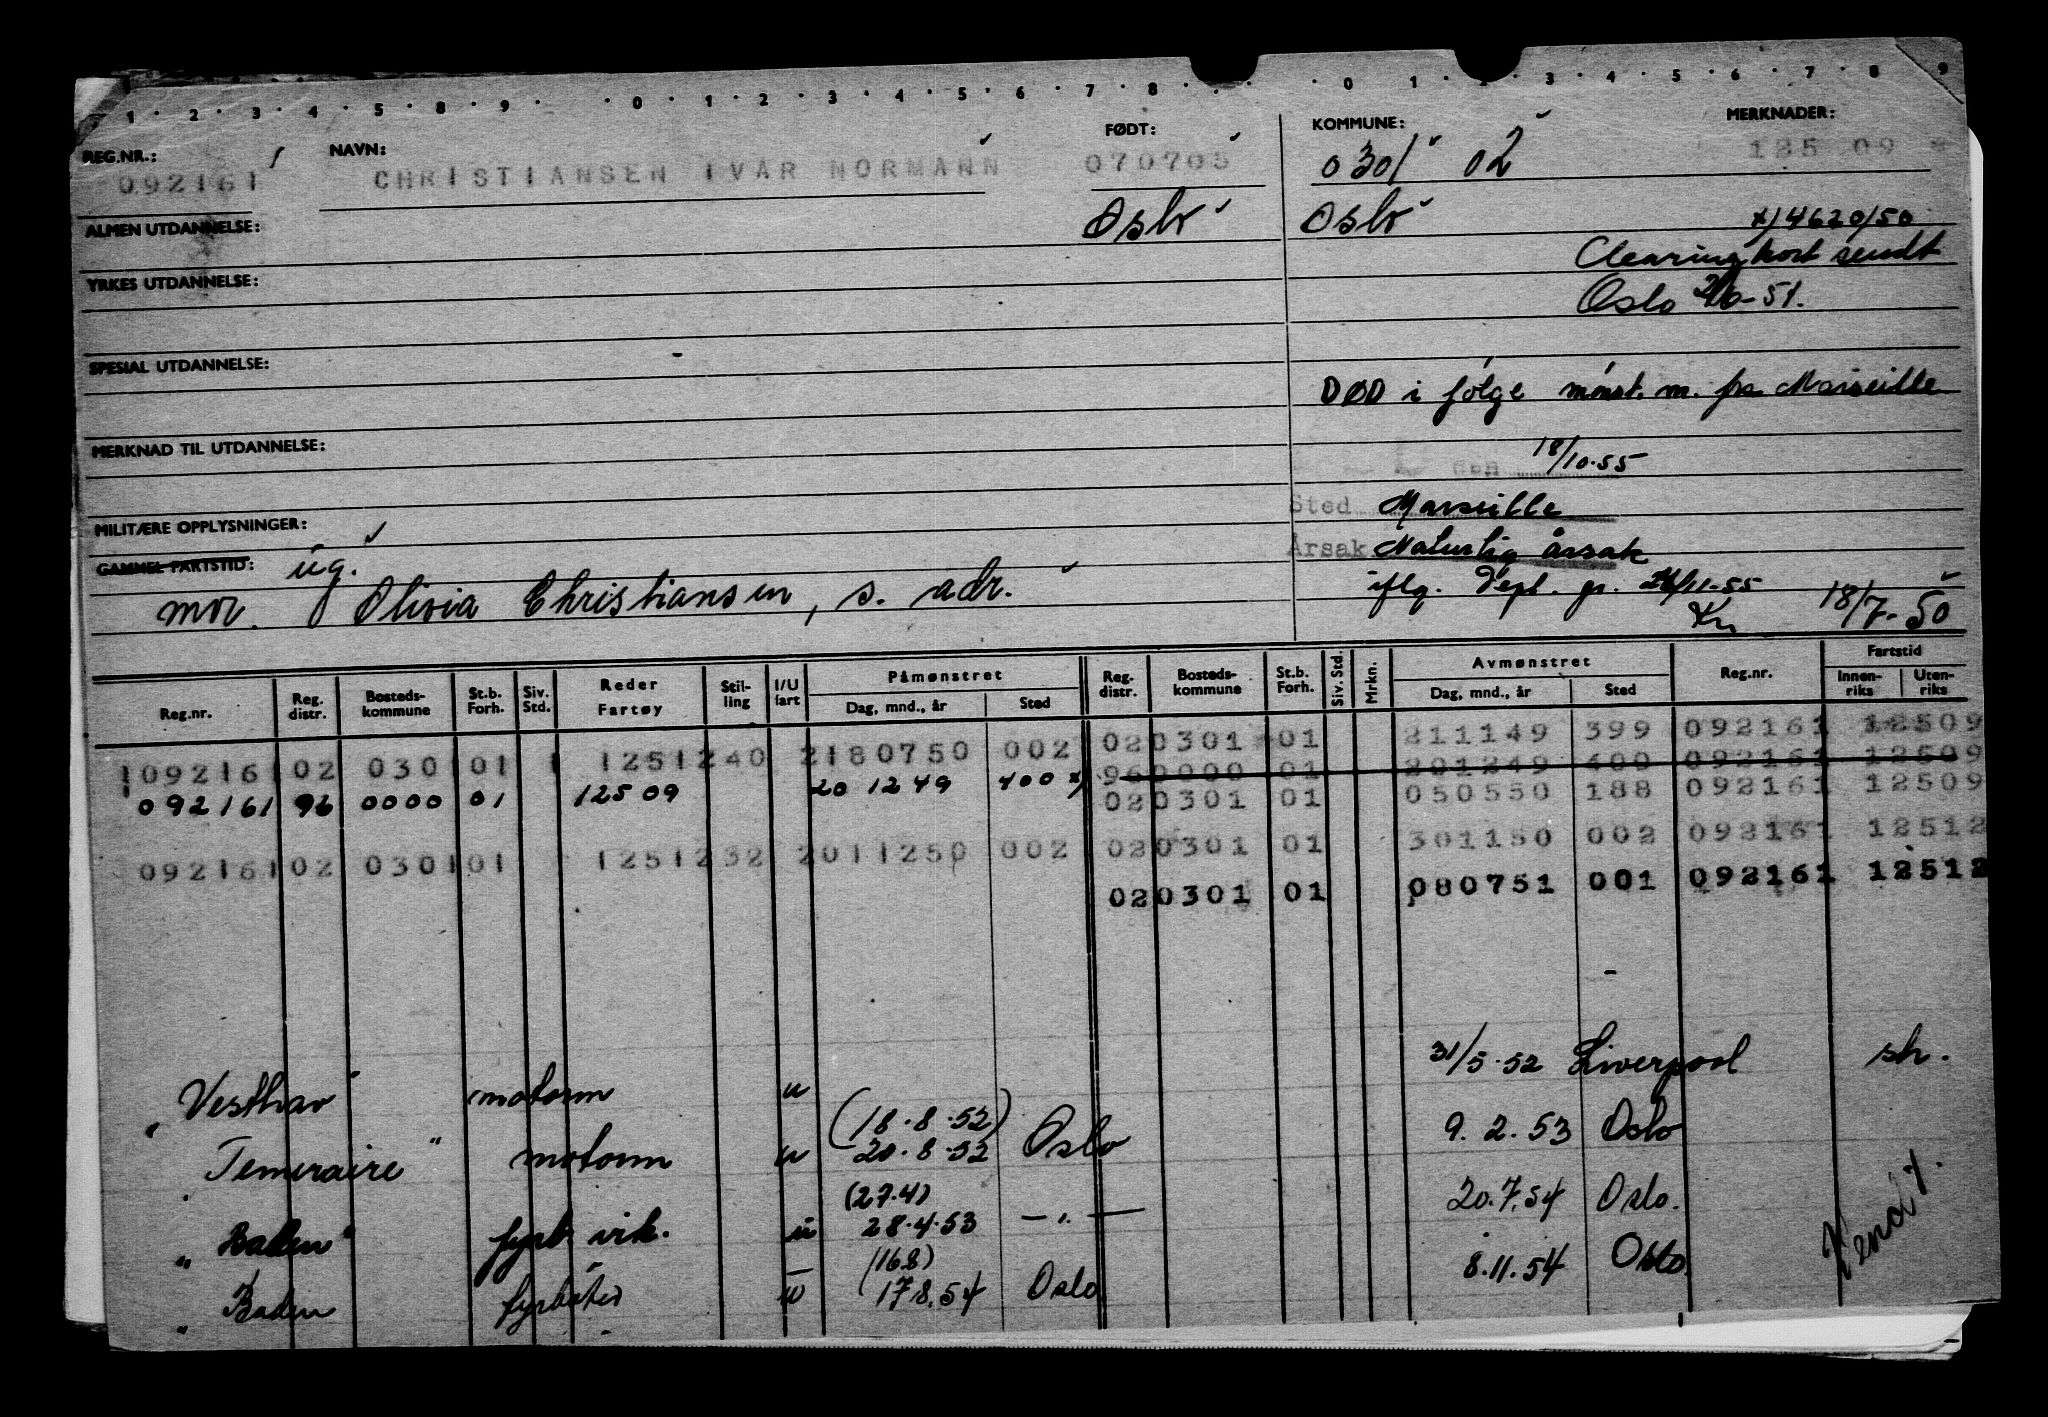 1 · 2 · 3 · 4 · 5 · 8 · 9 · · 0 · 1 · 2 · 3 · 4 · 5 · 6 · 7 · 8 · · · · 0 1 · 2 · 3 · 4 · 5 · 6 · 7 · 8 · 9
REG.NR.: NAVN: FØDT: KOMMUNE: MERKNADER:
092161 CHRISTIANSEN IVAR NORMANN 070705 0301 02 125 09
ALMEN UTDANNELSE: Oslo Oslo x) 4620/50
YRKES UTDANNELSE: Clearingkort sendt
Oslo -51.
SPESIAL UTDANNELSE:
DØD i følge mønst. m. fra Marseille
MERKNAD TIL UTDANNELSE:
den 18/10-55
Sted Marseille
MILITÆRE OPPLYSNINGER:
Årsak Naturlig årsak
GAMMEL FARTSTID: ug.
iflg. Dept. gr. /11-55 18/7-50
mor. Olivia Christiansen, s. adr. Kn
Reg.nr. Reg. distr. Bosteds-kommune St.b. Forh. Siv. Std. Reder Fartøy Stil-ling I/U fart Påmønstret Dag, mnd., år Sted Reg. distr. Bosteds-kommune St.b. Forh. Siv. Std. Mrkn. Avmønstret Dag, mnd., år Sted Reg.nr. Fartstid Innen-riks Uten-riks
020301 01 211149 399 092161 12509
1092161 02 0301 01 1 1251240 2180750 002 960000 01 201249 400 092161 12509
092161 96 0000 01 12509 20 12 49 400 x) 020301 01 050550 188 092161 12509
020301 01 301150 002 092161 12512
092161 02 0301 01 1251232 2011250 002
020301 01 080751 001 092161 12512
31/5-52 Liverpool sh.
"Vesthav" motorm u
(18.8.52)
"Temeraire" motorm u 20.8.52 Oslo 9.2.53 Oslo
(27.4)
"Baden" fyrb. vik. u 28.4.53 —"— 20.7.54 Oslo.
(16.8)
"Baden fyrbøter u 17.8.54 Oslo 8.11.54 Oslo.
Vend!